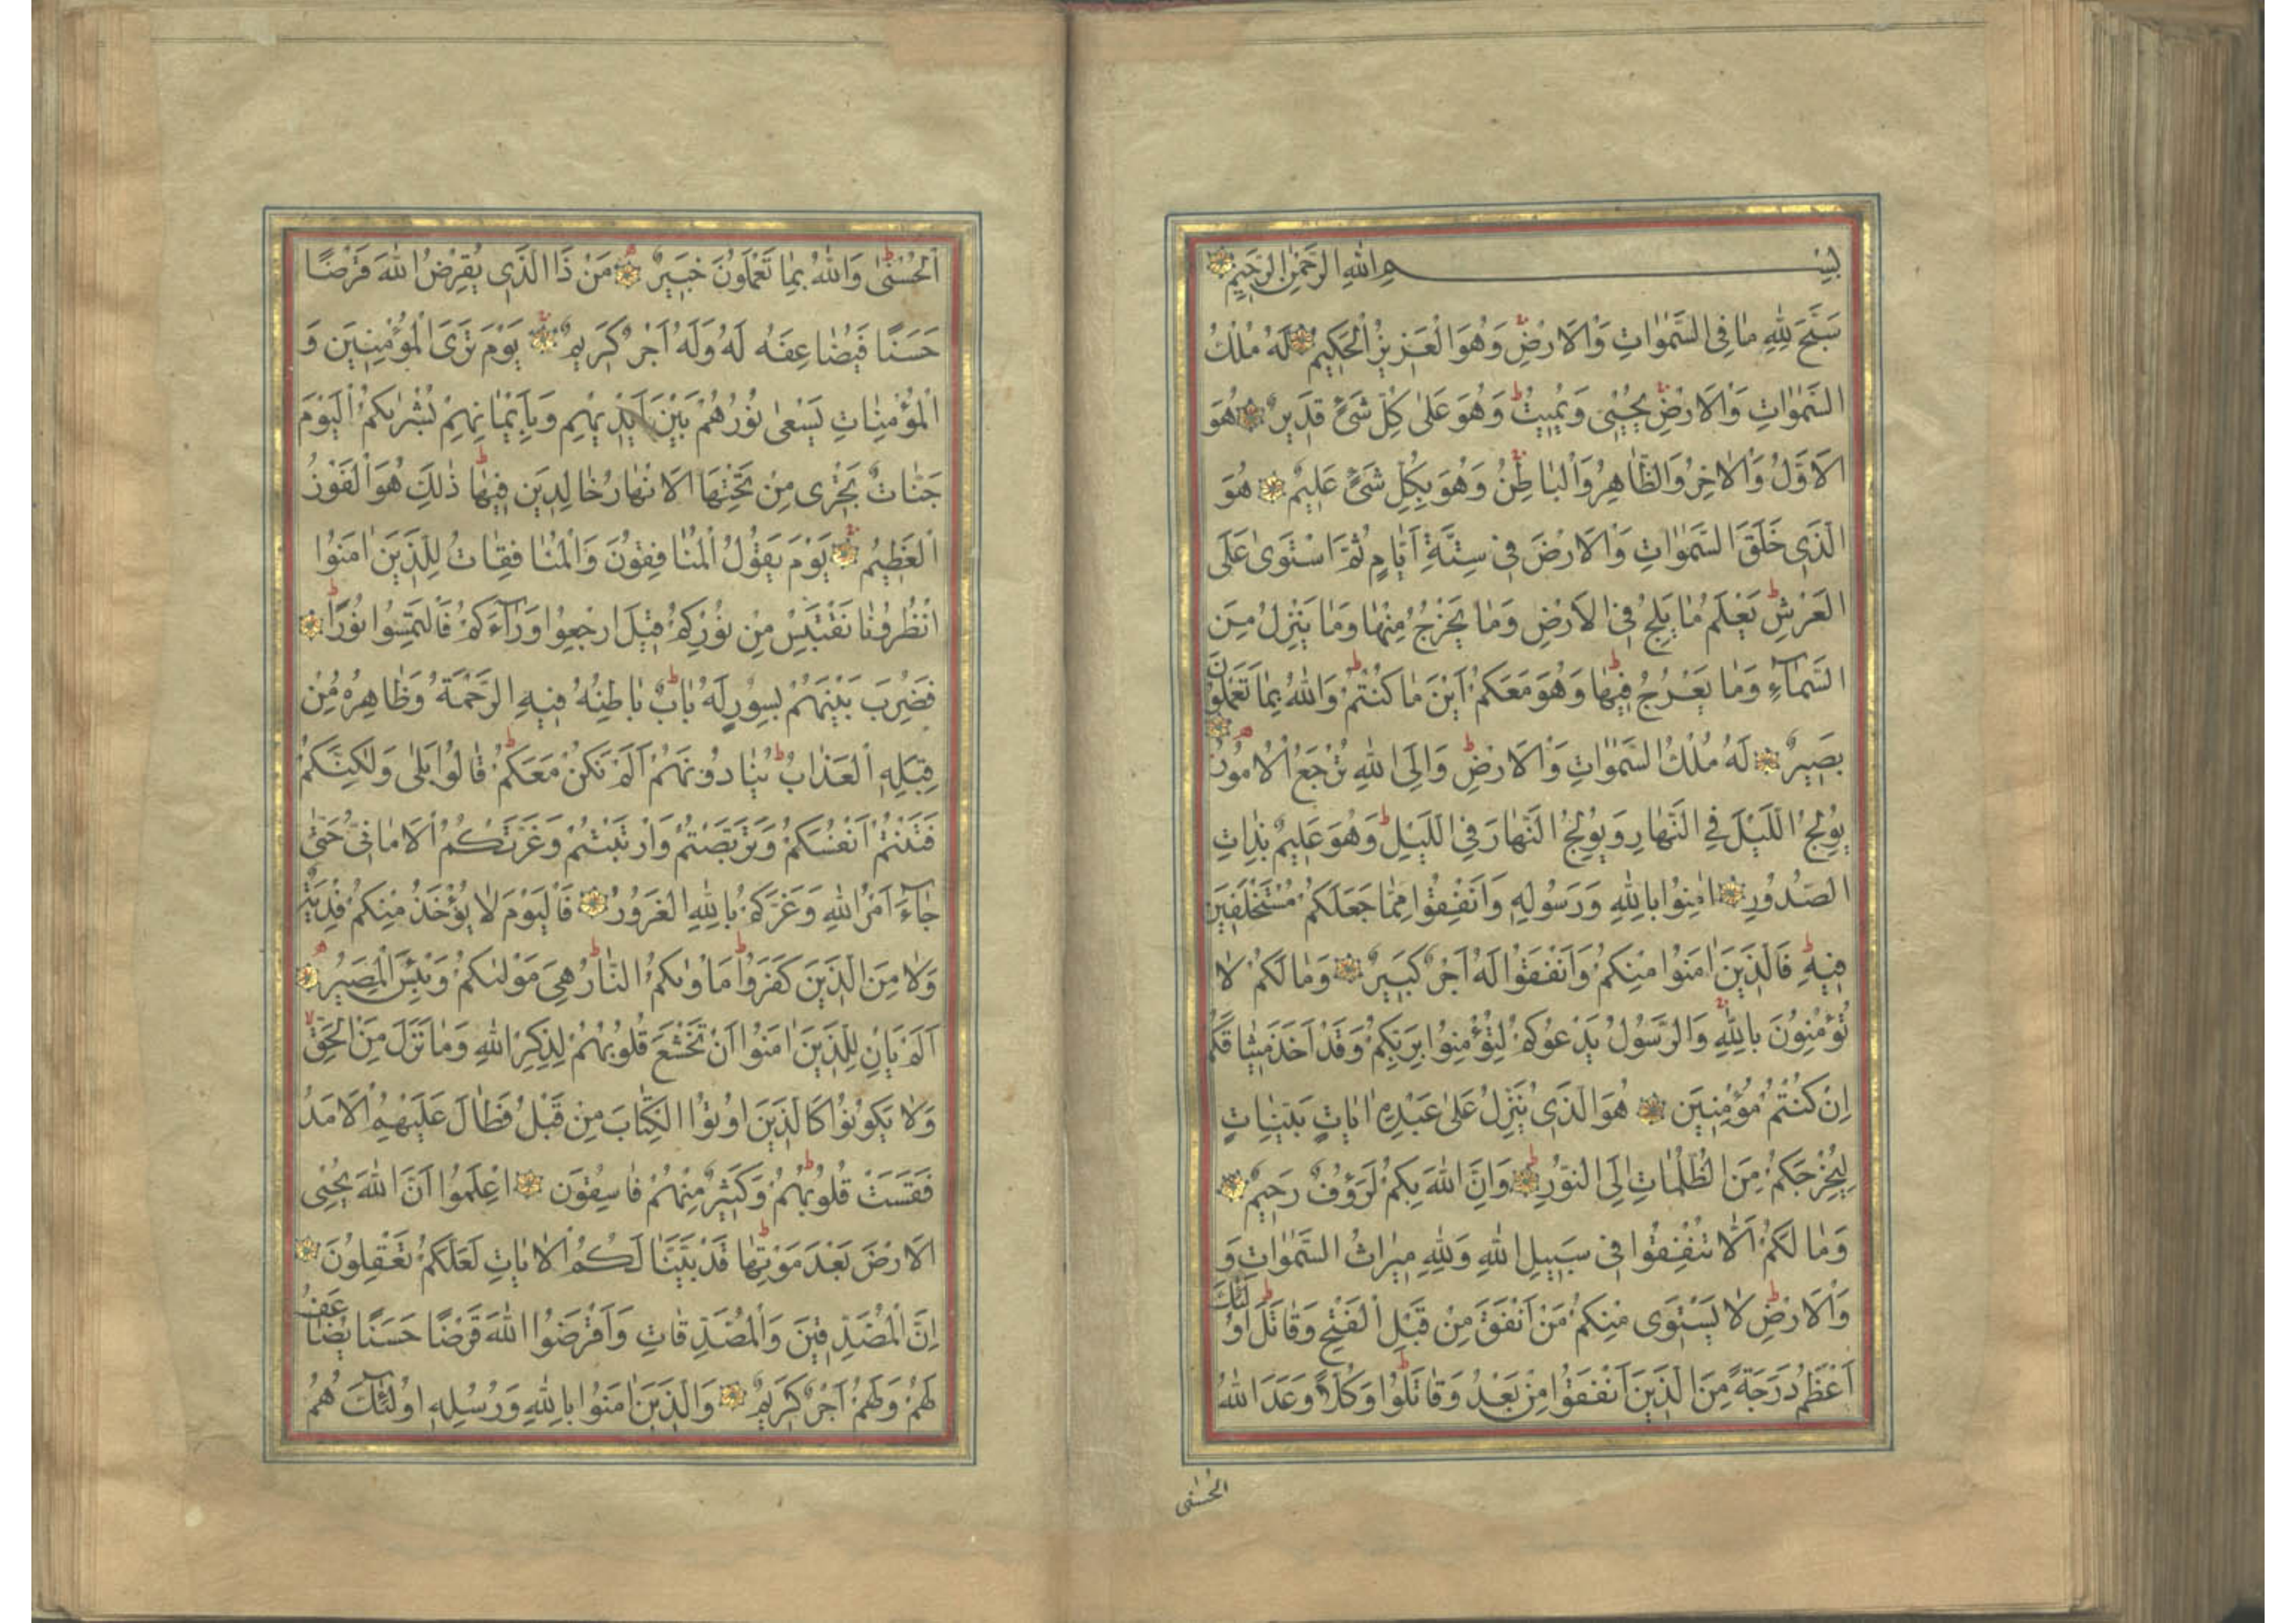 بِسْمِ اللهِ الرَّحْمٰنِ الرَّحِيمِ
سَبَّحَ لِلّٰهِ مَا فِى السَّمٰوَاتِ وَالْاَرْضِ وَهُوَ الْعَزِيزُ الْحَكِيمُ لَهُ مُلْكُ
السَّمٰوَاتِ وَالْاَرْضِ يُحْيِى وَيُمِيتُ وَهُوَ عَلٰى كُلِّ شَىْءٍ قَدِيرٌ هُوَ
الْاَوَّلُ وَالْاٰخِرُ وَالظَّاهِرُ وَالْبَاطِنُ وَهُوَ بِكُلِّ شَىْءٍ عَلِيمٌ هُوَ
الَّذِى خَلَقَ السَّمٰوَاتِ وَالْاَرْضَ فِى سِتَّةِ اَيَّامٍ ثُمَّ اسْتَوٰى عَلَى
الْعَرْشِ يَعْلَمُ مَا يَلِجُ فِى الْاَرْضِ وَمَا يَخْرُجُ مِنْهَا وَمَا يَنْزِلُ مِنَ
السَّمَآءِ وَمَا يَعْرُجُ فِيهَا وَهُوَ مَعَكُمْ اَيْنَ مَا كُنْتُمْ وَاللهُ بِمَا تَعْمَلُونَ
بَصِيرٌ لَهُ مُلْكُ السَّمٰوَاتِ وَالْاَرْضِ وَاِلَى اللهِ تُرْجَعُ الْاُمُورُ
يُولِجُ اللَّيْلَ فِى النَّهَارِ وَيُولِجُ النَّهَارَ فِى اللَّيْلِ وَهُوَ عَلِيمٌ بِذَاتِ
الصُّدُورِ اٰمِنُوا بِاللهِ وَرَسُولِهِ وَاَنْفِقُوا مِمَّا جَعَلَكُمْ مُسْتَخْلَفِينَ
فِيهِ فَالَّذِينَ اٰمَنُوا مِنْكُمْ وَاَنْفَقُوا لَهُمْ اَجْرٌ كَبِيرٌ وَمَا لَكُمْ لَا
تُؤْمِنُونَ بِاللهِ وَالرَّسُولُ يَدْعُوكُمْ لِتُؤْمِنُوا بِرَبِّكُمْ وَقَدْ اَخَذَ مِيثَاقَكُمْ
اِنْ كُنْتُمْ مُؤْمِنِينَ هُوَ الَّذِى يُنَزِّلُ عَلٰى عَبْدِهِ اٰيَاتٍ بَيِّنَاتٍ
لِيُخْرِجَكُمْ مِنَ الظُّلُمَاتِ اِلَى النُّورِ وَاِنَّ اللهَ بِكُمْ لَرَؤُفٌ رَحِيمٌ
وَمَا لَكُمْ اَلَّا تُنْفِقُوا فِى سَبِيلِ اللهِ وَلِلّٰهِ مِيرَاثُ السَّمٰوَاتِ وَ
وَالْاَرْضِ لَا يَسْتَوِى مِنْكُمْ مَنْ اَنْفَقَ مِنْ قَبْلِ الْفَتْحِ وَقَاتَلَ اُولٰئِكَ
اَعْظَمُ دَرَجَةً مِنَ الَّذِينَ اَنْفَقُوا مِنْ بَعْدُ وَقَاتَلُوا وَكُلًّا وَعَدَ اللهُ
الْحُسْنٰى
الْحُسْنٰى وَاللهُ بِمَا تَعْمَلُونَ خَبِيرٌ مَنْ ذَا الَّذِى يُقْرِضُ اللهَ قَرْضًا
حَسَنًا فَيُضَاعِفَهُ لَهُ وَلَهُ اَجْرٌ كَرِيمٌ يَوْمَ تَرَى الْمُؤْمِنِينَ وَ
الْمُؤْمِنَاتِ يَسْعٰى نُورُهُمْ بَيْنَ اَيْدِيهِمْ وَبِاَيْمَانِهِمْ بُشْرٰيكُمُ الْيَوْمَ
جَنَّاتٌ تَجْرِى مِنْ تَحْتِهَا الْاَنْهَارُ خَالِدِينَ فِيهَا ذٰلِكَ هُوَ الْفَوْزُ
الْعَظِيمُ يَوْمَ يَقُولُ الْمُنَافِقُونَ وَالْمُنَافِقَاتُ لِلَّذِينَ اٰمَنُوا
انْظُرُونَا نَقْتَبِسْ مِنْ نُورِكُمْ قِيلَ ارْجِعُوا وَرَآءَكُمْ فَالْتَمِسُوا نُورًا
فَضُرِبَ بَيْنَهُمْ بِسُورٍ لَهُ بَابٌ بَاطِنُهُ فِيهِ الرَّحْمَةُ وَظَاهِرُهُ مِنْ
قِبَلِهِ الْعَذَابُ يُنَادُونَهُمْ اَلَمْ نَكُنْ مَعَكُمْ قَالُوا بَلٰى وَلٰكِنَّكُمْ
فَتَنْتُمْ اَنْفُسَكُمْ وَتَرَبَّصْتُمْ وَارْتَبْتُمْ وَغَرَّتْكُمُ الْاَمَانِىُّ حَتّٰى
جَآءَ اَمْرُ اللهِ وَغَرَّكُمْ بِاللهِ الْغَرُورُ فَالْيَوْمَ لَا يُؤْخَذُ مِنْكُمْ فِدْيَةٌ
وَلَا مِنَ الَّذِينَ كَفَرُوا مَاْوٰيكُمُ النَّارُ هِىَ مَوْلٰيكُمْ وَبِئْسَ الْمَصِيرُ
اَلَمْ يَاْنِ لِلَّذِينَ اٰمَنُوا اَنْ تَخْشَعَ قُلُوبُهُمْ لِذِكْرِ اللهِ وَمَا نَزَلَ مِنَ الْحَقِّ
وَلَا يَكُونُوا كَالَّذِينَ اُوتُوا الْكِتَابَ مِنْ قَبْلُ فَطَالَ عَلَيْهِمُ الْاَمَدُ
فَقَسَتْ قُلُوبُهُمْ وَكَثِيرٌ مِنْهُمْ فَاسِقُونَ اِعْلَمُوا اَنَّ اللهَ يُحْيِى
الْاَرْضَ بَعْدَ مَوْتِهَا قَدْ بَيَّنَّا لَكُمُ الْاٰيَاتِ لَعَلَّكُمْ تَعْقِلُونَ
اِنَّ الْمُصَّدِّقِينَ وَالْمُصَّدِّقَاتِ وَاَقْرَضُوا اللهَ قَرْضًا حَسَنًا يُضَاعَفُ
لَهُمْ وَلَهُمْ اَجْرٌ كَرِيمٌ وَالَّذِينَ اٰمَنُوا بِاللهِ وَرُسُلِهِ اُولٰئِكَ هُمُ